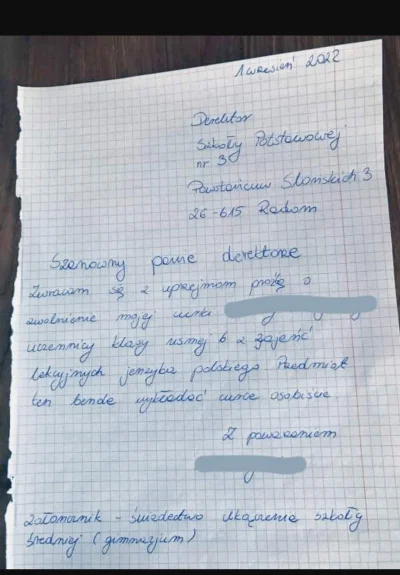 1 wresień 2022
Derektor
Szkoły Potstawowej
nr 3
Powstańcuw Slonskich 3
26-615 Radom
Szanowny panie derektorze
Zwracam sę z uprejmom proźbą o
zwolnienie mojej curki
uczennicy klasy usmej b z zajeńć
lekcyjnych jenzyka polskiego Predmiot
ten bende wykładać curce osobiscie
Z powarzaniem
załoncznik - świedectwo ukączenia szkoły
średniej (gimnazjum)